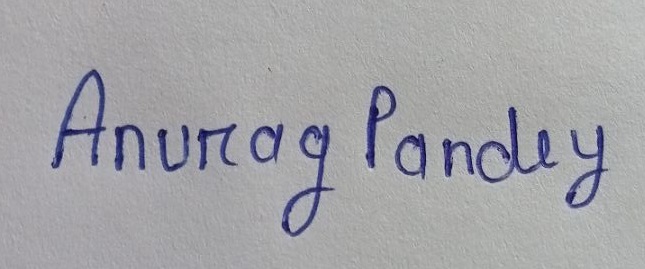 Anurag Pandey